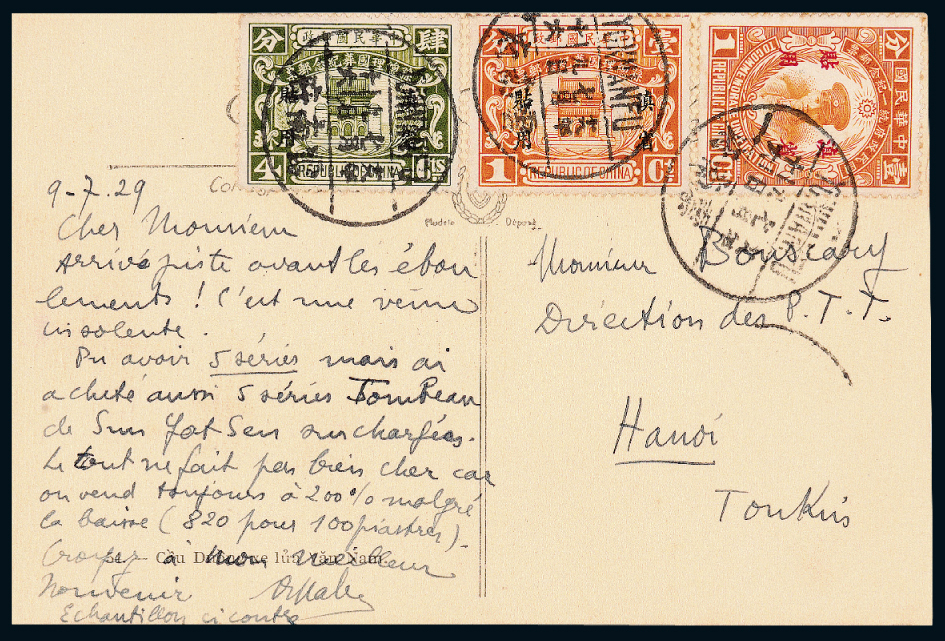 分 中華民國郵政 肆
貼 用
4 REPUBLIC OF CHINA CTS
壹 中華民國郵政 分
滇 省 貼 用
1 REPUBLIC OF CHINA CT
YUNNANFU
1 中華民國郵政 分
貼 用
壹
YUNNANFU
Modèle Déposé
9-7.29
Cher Monsieur
Arrivé juste avant les ébou
lements ! C'est une veine
insolente.
Pu avoir 5 séries mais ai
acheté aussi 5 séries Tombeau
de Sun Yat Sen surchargées.
Le tout ne fait pas bien cher car
on vend toujours à 200% malgré
la baisse (820 pour 100 piastres).
Croyez à mon meilleur
54. — Cầu
souvenir
Echantillon ci contre
Monsieur
Direction des P.T.T.
Hanoi
Tonkin